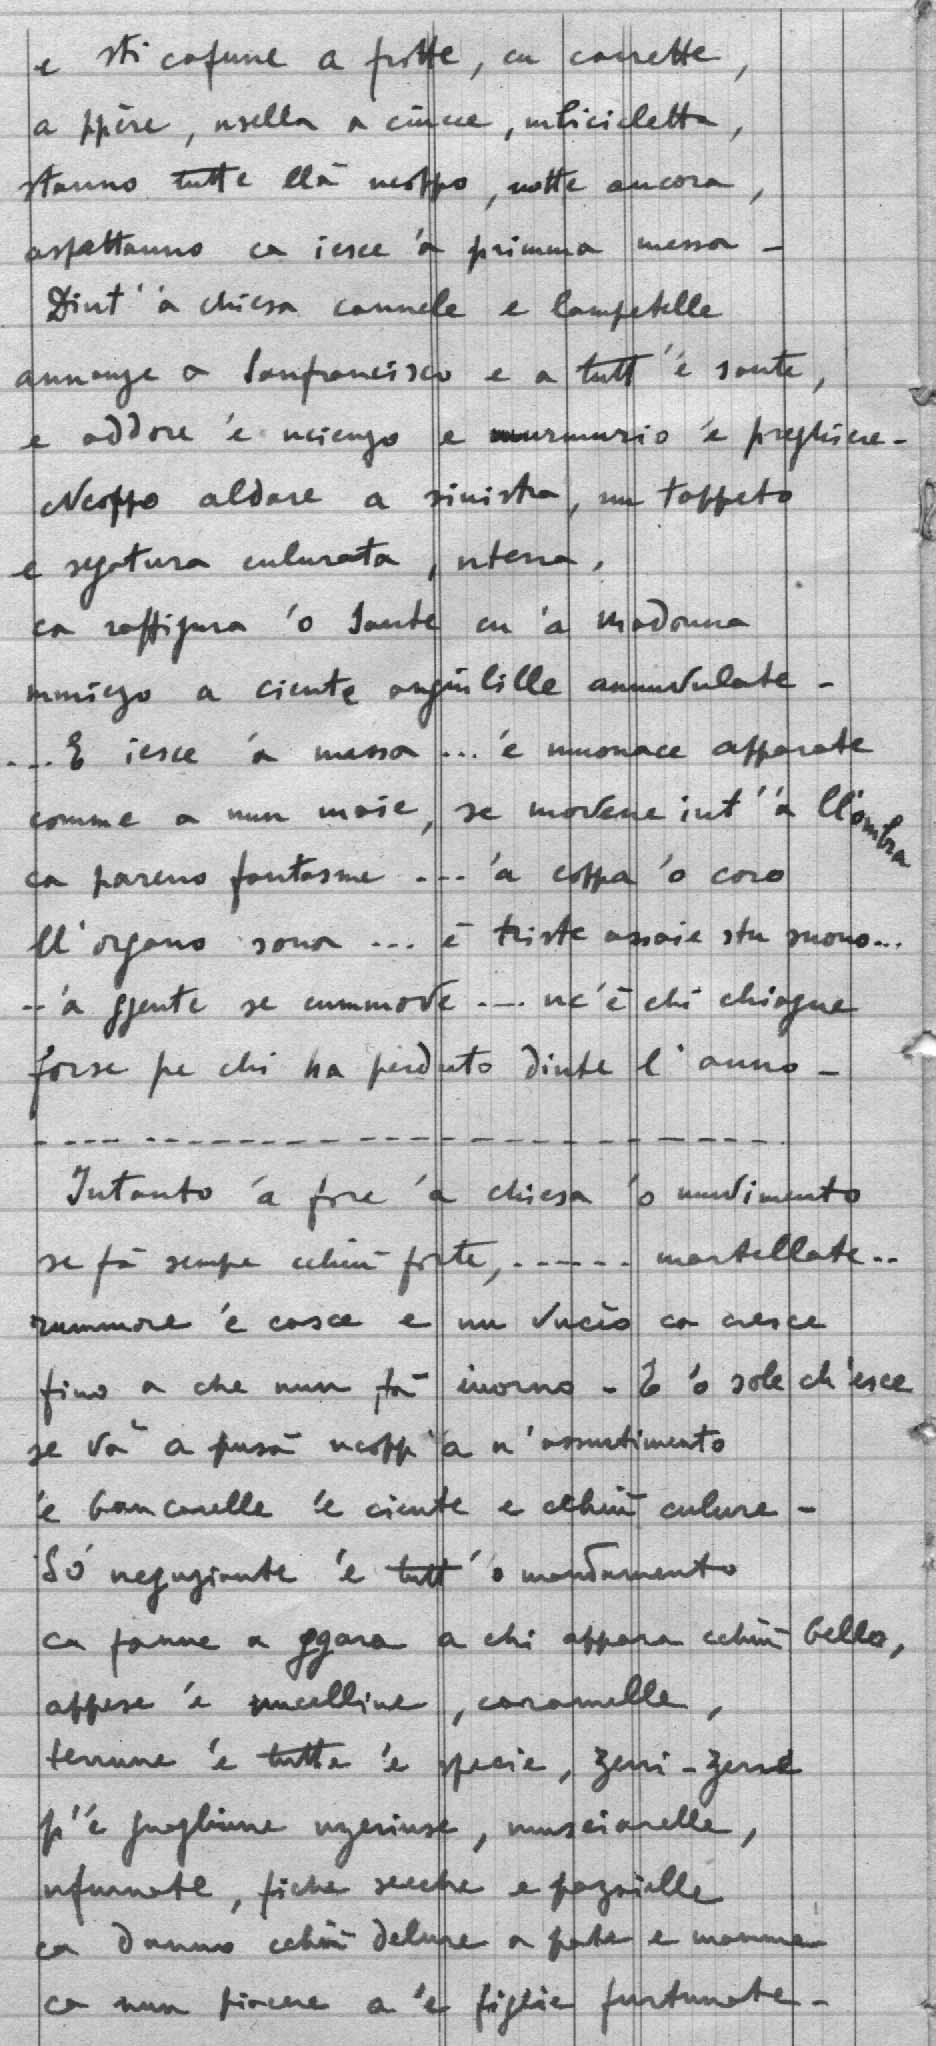 e sti cafune a frotte, cu carrette,
a ppère, nsella a ciucce, mbicicletta,
stanno tutte llà ncoppo, notte ancora,
aspettanno ca iesce 'a primma messa -
Dint' 'a chiesa cannele e lampetelle
annanze a Sanfrancisco e a tutt' 'e sante,
e addore 'e ncienzo e murmurio 'e preghiere -
Ncoppo aldare a sinistra, nu tappeto
e segatura culurata, nterra,
ca raffigura 'o Sante cu 'a Madonna
mmiezo a ciente angiulille annuvulate -
... E iesce 'a messa ... 'e muonace apparate
comme a nun maie, se movene int' 'a ll'ombra
ca pareno fantasme ... 'a coppa 'o coro
ll'organo sona ... è triste assaie stu suono...
.. 'a ggente se cummove ... nc'è chi chiagne
forse pe chi ha perduto dinte l'anno -
Intanto 'a fore 'a chiesa 'o muvimento
se fà sempe cchiù forte, ...... martellate..
rummore 'e casce e nu vucìo ca cresce
fino a che nun fà iuorno - E 'o sole ch'esce
se và a pusà ncopp'a n'assurtimento
'e bancarelle 'e ciente e cchiù culure -
Só neguziante 'e tutt' 'o mandamento
ca fanne a ggara a chi appara cchiù bella,
appese 'e nucelline, caramelle,
terrune 'e tutte 'e specie, zerri-zerre
p' 'e guagliune nzeriuse, musciarelle,
nfurnate, fiche secche e pazzielle
ca danno cchiù delure a pate e mamme
ca nun piacere a 'e figlie furtunate -